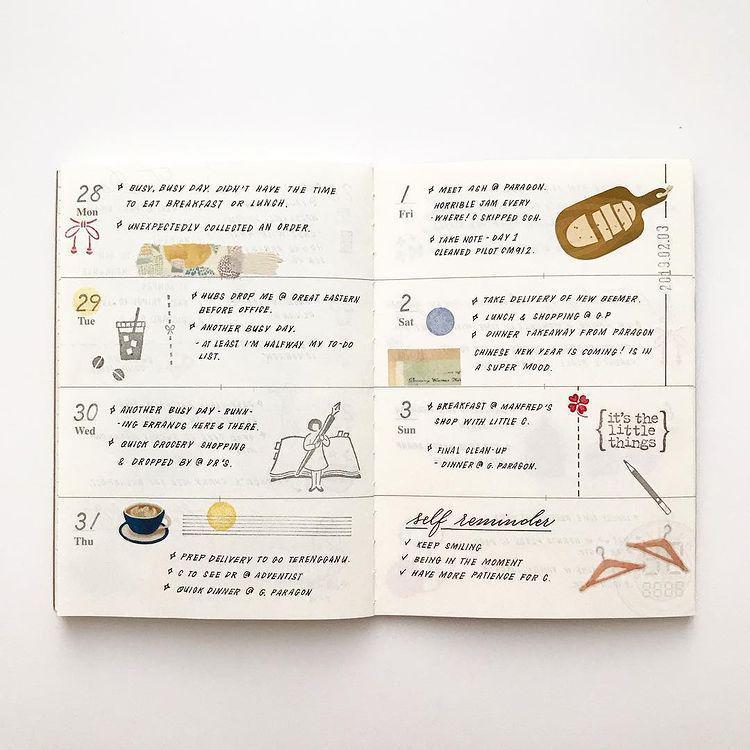 28
Mon
BUSY, BUSY DAY. DIDN'T HAVE THE TIME
TO EAT BREAKFAST OR LUNCH.
UNEXPECTEDLY COLLECTED AN ORDER.
29
Tue
HUBS DROP ME @ GREAT EASTERN
BEFORE OFFICE.
ANOTHER BUSY DAY.
- AT LEAST I'M HALFWAY MY TO-DO
LIST.
30
Wed
ANOTHER BUSY DAY - RUNN-
ING ERRANDS HERE & THERE.
QUICK GROCERY SHOPPING
& DROPPED BY @ DR'S.
31
Thu
PREP DELIVERY TO GO TERENGGANU.
C TO SEE DR @ ADVENTIST
QUICK DINNER @ G. PARAGON
1
Fri
MEET ASH @ PARAGON.
HORRIBLE JAM EVERY
-WHERE! C SKIPPED SCH.
TAKE NOTE - DAY 1
CLEANED PILOT CM912.
2019.02.03
2
Sat
TAKE DELIVERY OF NEW BEEMER.
LUNCH & SHOPPING @ G.P
DINNER TAKEAWAY FROM PARAGON
CHINESE NEW YEAR IS COMING! IS IN
A SUPER MOOD.
3
Sun
BREAKFAST @ MANFRED'S
SHOP WITH LITTLE C.
FINAL CLEAN-UP
- DINNER @ G. PARAGON.
{it's the
little
things}
self reminder
✓ KEEP SMILING
✓ BEING IN THE MOMENT
✓ HAVE MORE PATIENCE FOR C.